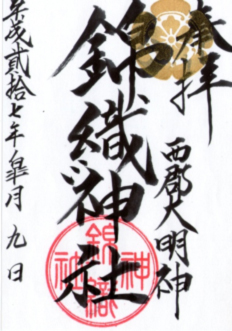 奉拝
西郡大明神
錦織神社
平成貳拾七年皐月九日
錦織神社